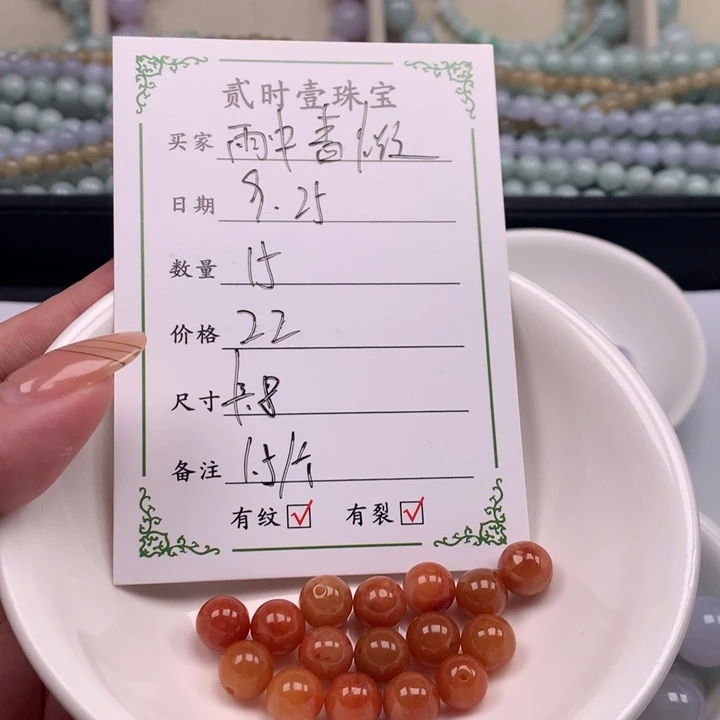 贰时壹珠宝
买家 雨中
日期 9.25
数量 15
价格 22
尺寸 8
备注 1.5/个
有纹 ☑ 有裂 ☑